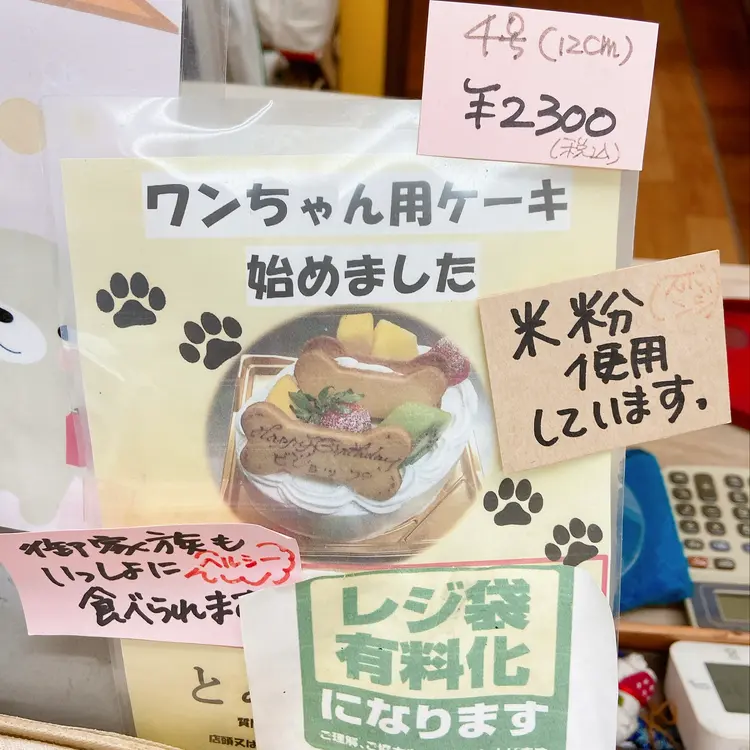 4号(12cm)
¥2300
(税込)
ワンちゃん用ケーキ
始めました
米粉
使用
しています。
Happy Birthday
御家族も
いっしょに
ヘルシー
食べられます
レジ袋
有料化
になります
店頭又は